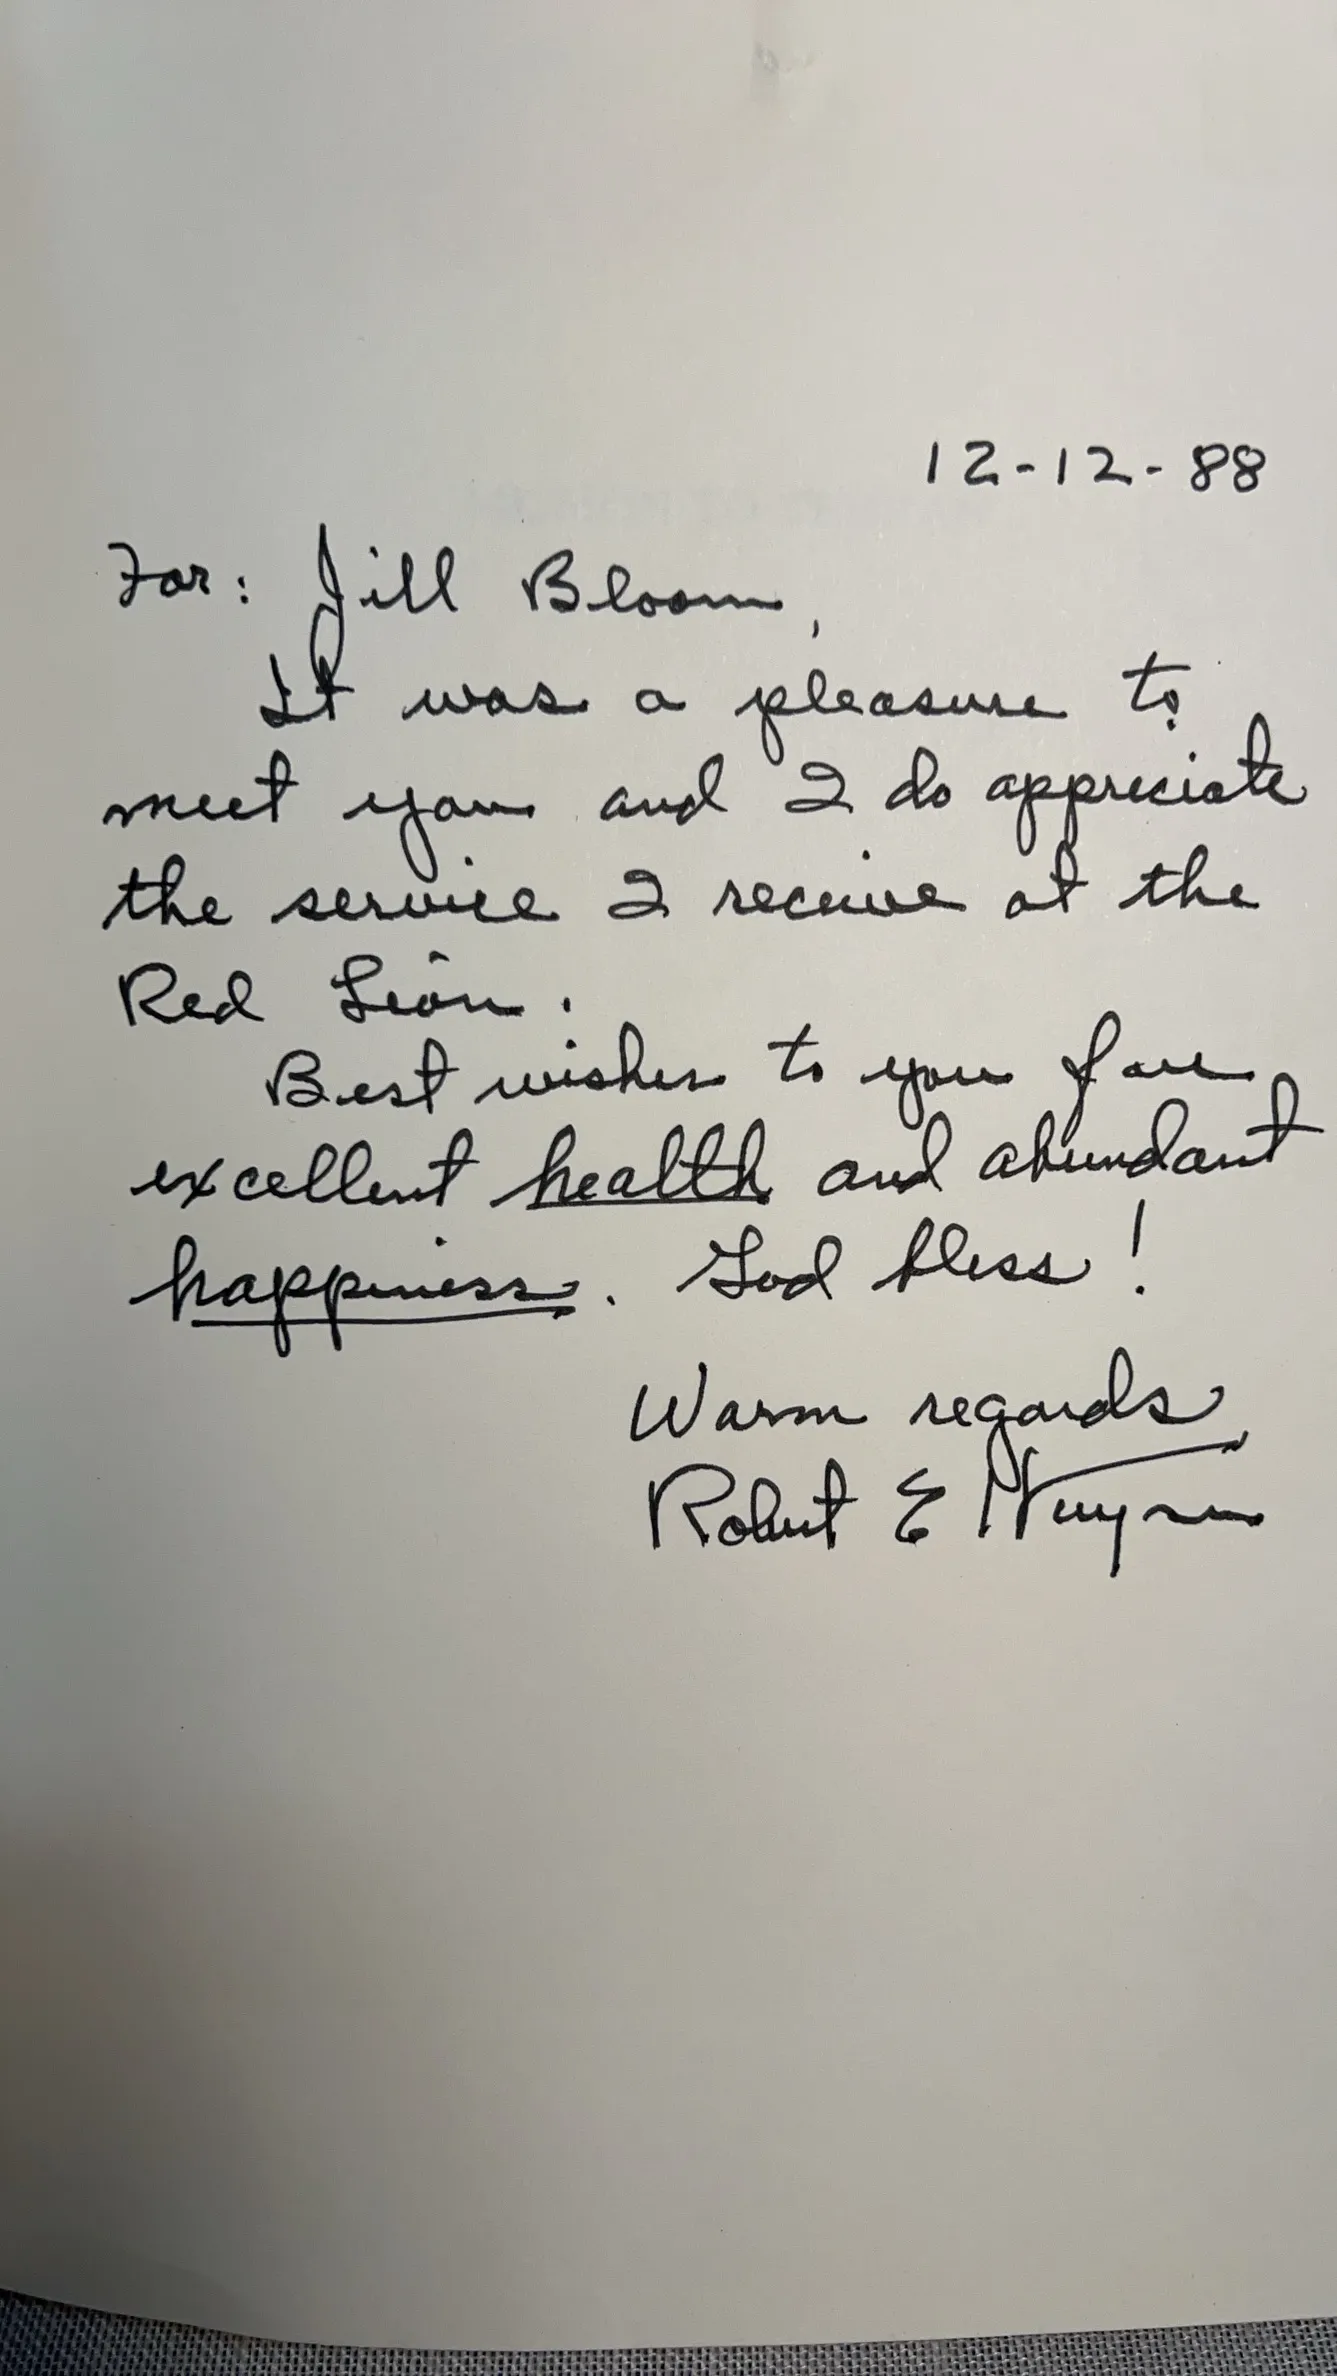 12-12-88
For: Jill Bloom,
It was a pleasure to
meet you and I do appreciate
the service I receive at the
Red Lion.
Best wishes to you for
excellent health and abundant
happiness. God bless!
Warm regards
Robert E